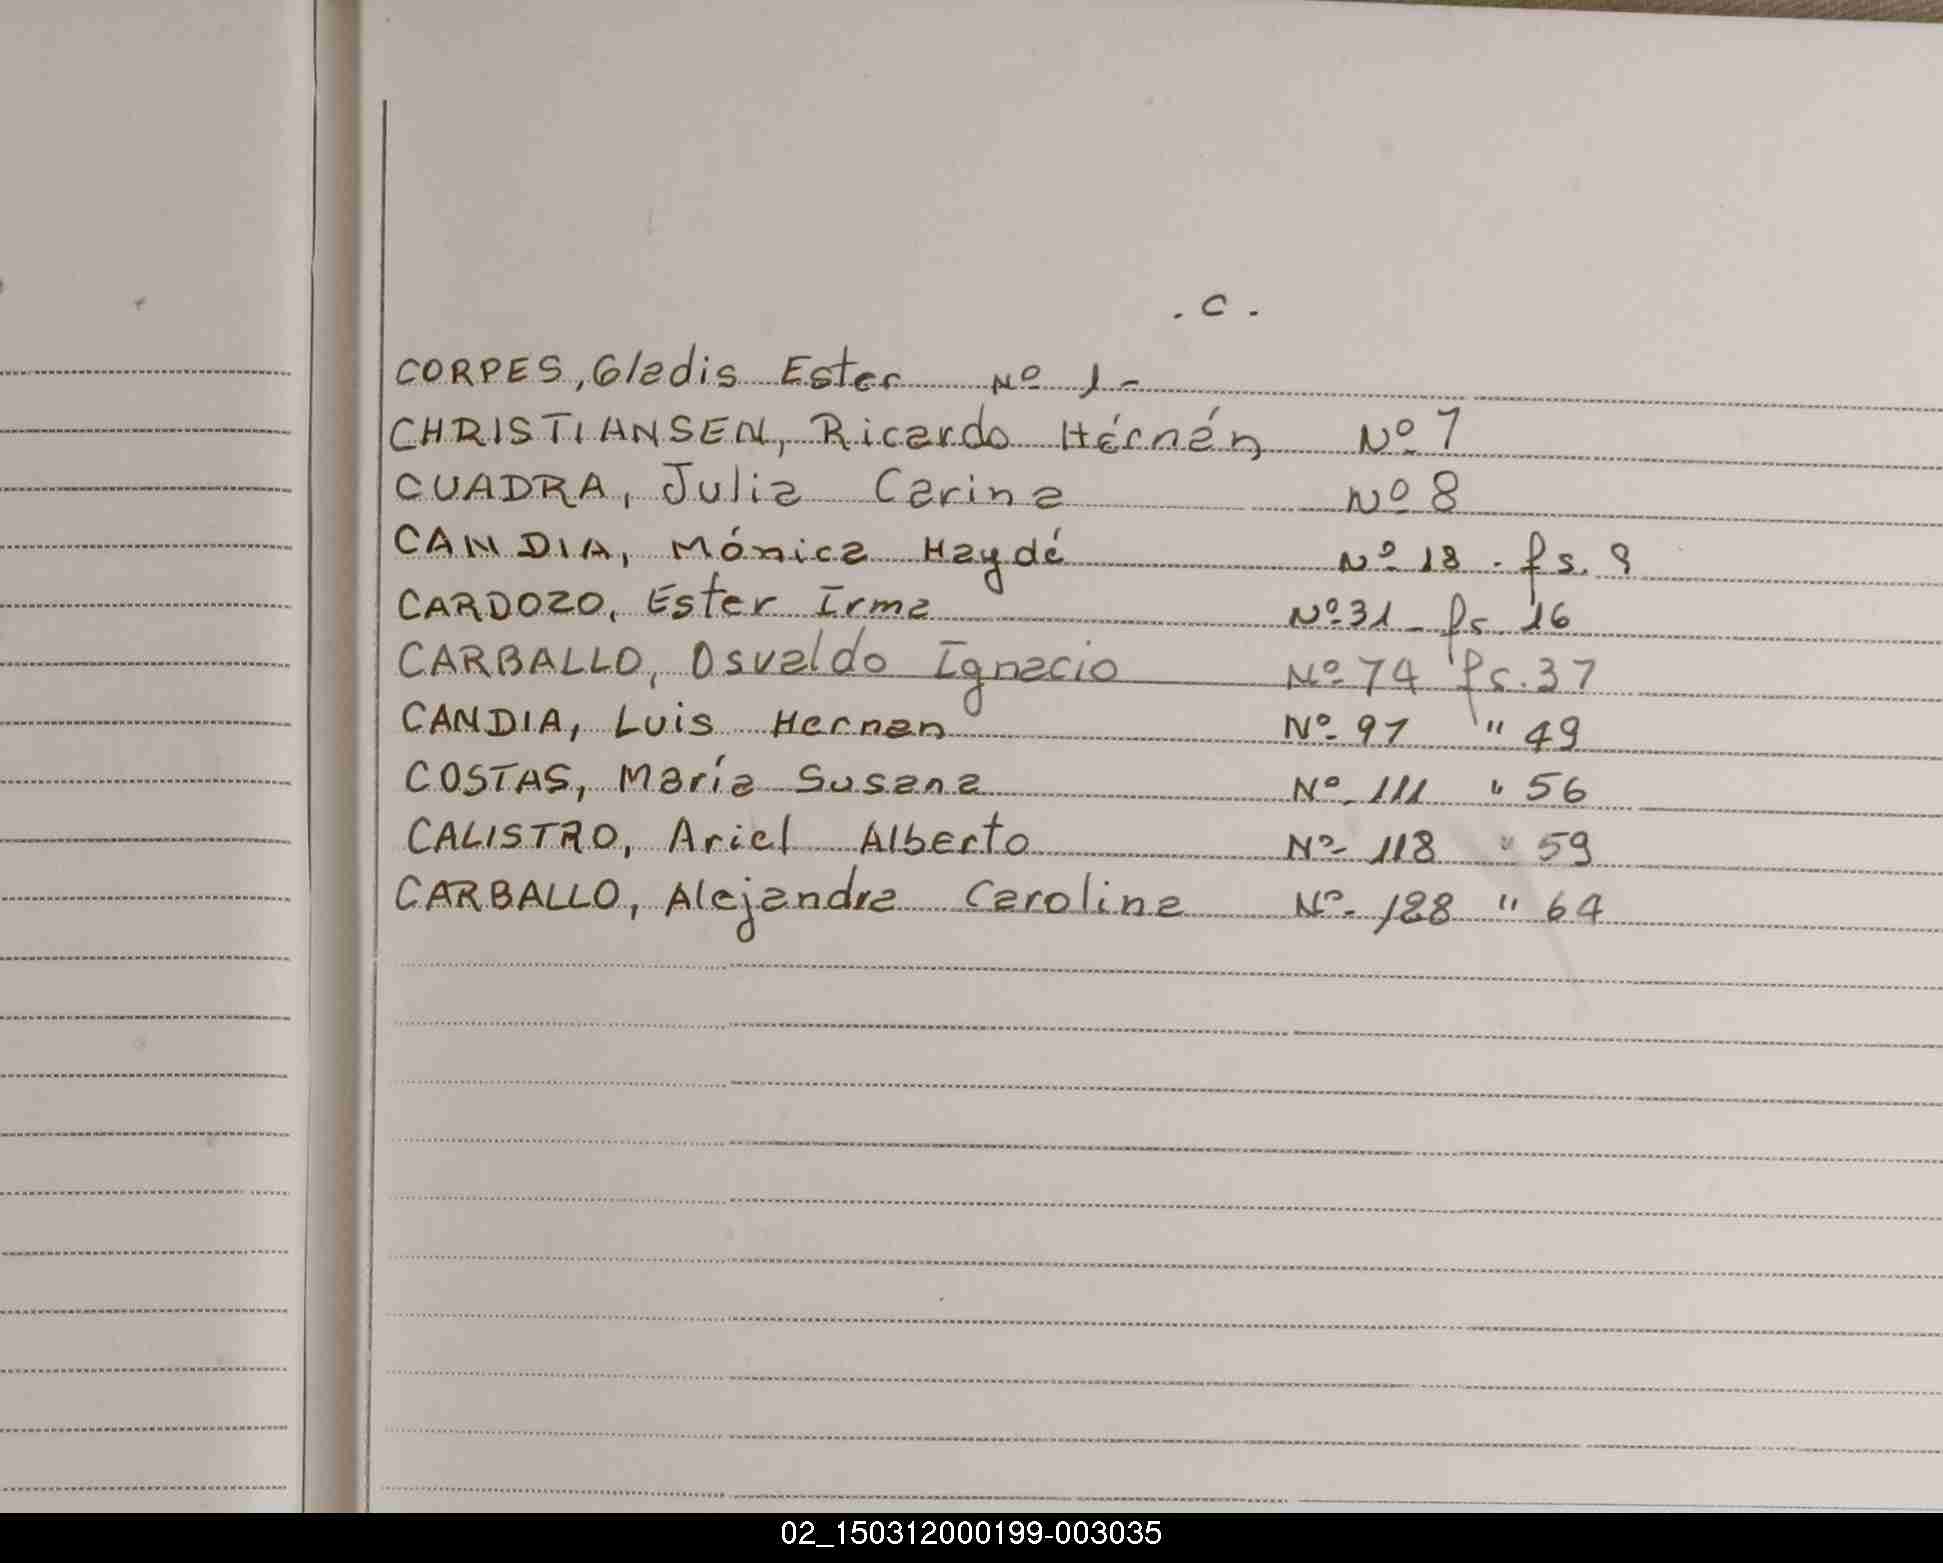 . C .
CORPES, Gladis Ester Nº 1-
CHRISTIANSEN, Ricardo Hérnán Nº 7
CUADRA, Julia Carina Nº 8
CANDIA, Mónica Haydé Nº 18 - fs. 9
CARDOZO, Ester Irma Nº 31 - fs 16
CARBALLO, Osvaldo Ignacio Nº 74 fs. 37
CANDIA, Luis Hernan Nº 97 " 49
COSTAS, María Susana Nº 111 " 56
CALISTRO, Ariel Alberto Nº 118 " 59
CARBALLO, Alejandra Carolina Nº 128 " 64
02_150312000199-003035